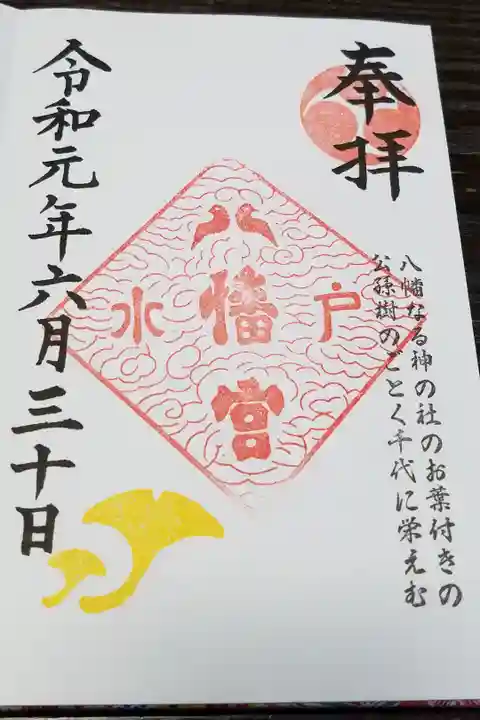 奉拝
八幡なる神の社のお葉付きの
公孫樹のごとく千代に栄えむ
八幡宮
水戸
令和元年六月三十日